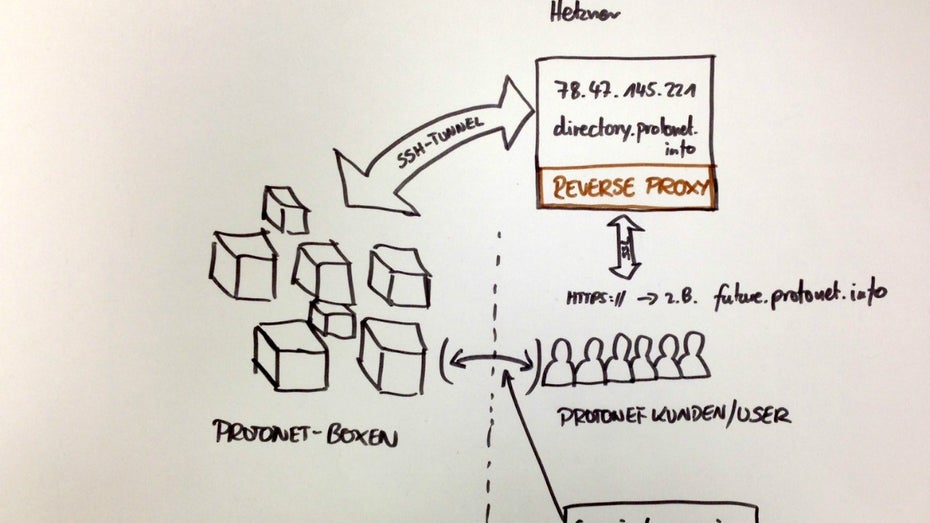 Hetzner
78.47.145.221
directory.protonet.
info
SSH-TUNNEL
REVERSE PROXY
SSL
HTTPS:// → z.B. future.protonet.info
PROTONET KUNDEN/USER
PROTONET-BOXEN